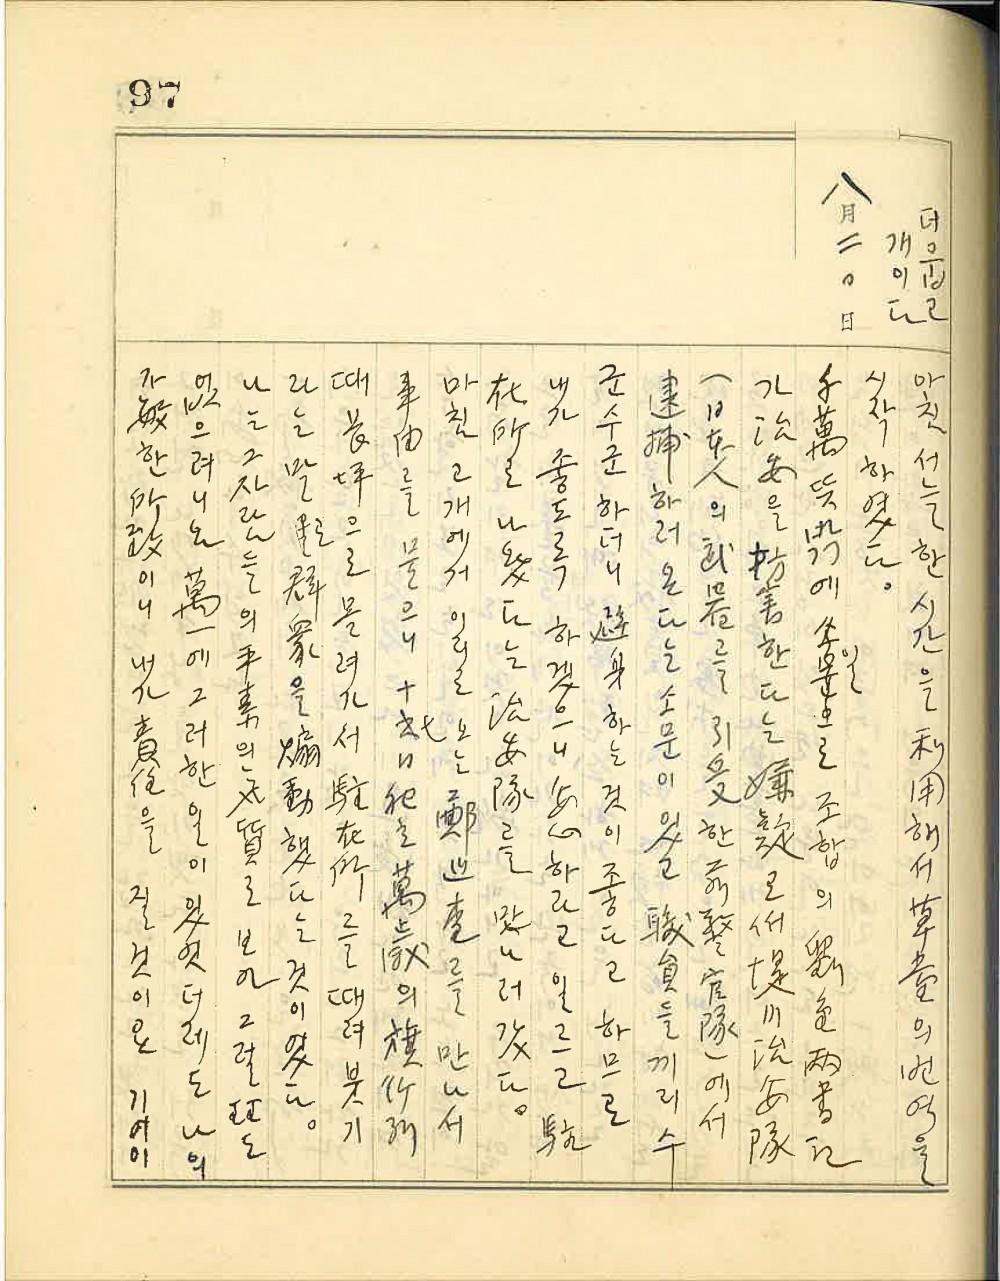 97
八月二0日
더웁고
개이다
아침 서늘한 시간을 利用해서 草堂의 번역을
시작하였다.
千萬 뜻밖에 일으로 조합의 劉 金 兩書記
가 治安을 妨害한다는 嫌疑로서 堤川治安隊
(日本人의 武器를 引受한 前警官隊)에서
逮捕하러 온다는 소문이 있고 職員들끼리 수
군수군하더니 避身하는 것이 좋다고 하므로
내가 좋도록 하겠으니, 安心하라고 일르고 駐
在所로 나왔다는 治安隊를 맞나러 갔다.
마침 고개에서 이리로 오는 鄭巡査를 만나서
事由를 물으니 十六日 祀 萬歲의 旗行列
때 長坪으로 몰려가서 駐在所를 때려붓기
라는 말로 群衆을 煽動했다는 것이였다.
나는 그 자람들의 平素의 氣質로 보아 그럴 理도
없으려니와 萬一에 그러한 일이 있었더레도 나의
不敏한 所致이니 내가 責任을 질 것이요 기어이